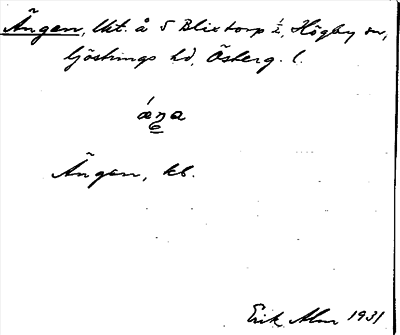 Ängen, lht. å S Blixtorp ½, Högby sn,
Göstrings hd, Österg. l.
áŋa
Ängen, kb.
Erik Alm 1931